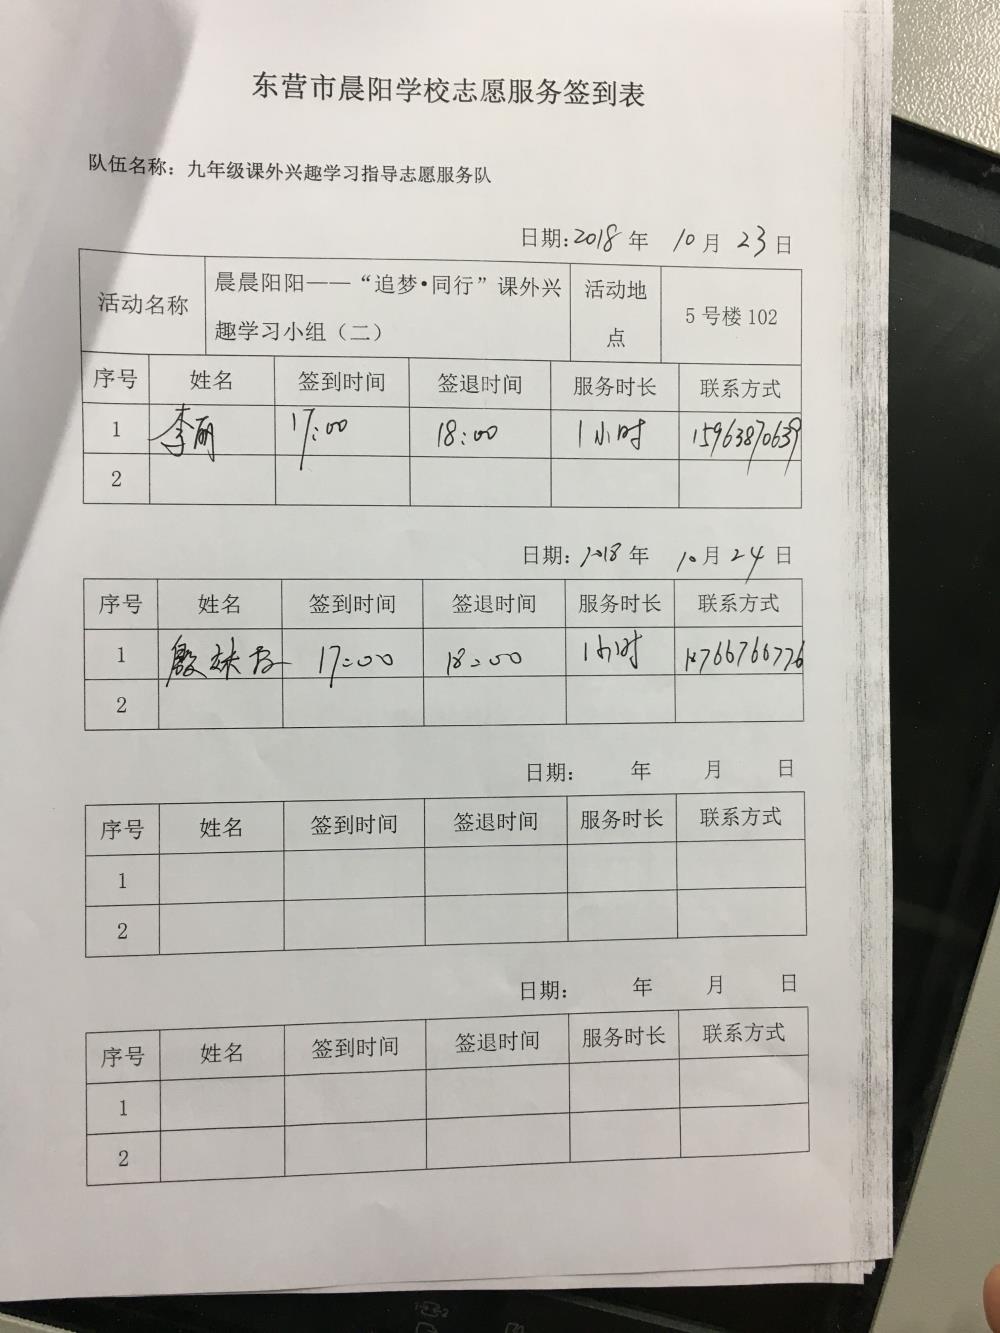 东营市晨阳学校志愿服务签到表
队伍名称：九年级课外兴趣学习指导志愿服务队
日期：2018 年 10 月 23 日
活动名称 晨晨阳阳——“追梦•同行”课外兴 活动地 5 号楼 102
趣学习小组（二） 点
序号 姓名 签到时间 签退时间 服务时长 联系方式
1 李丽 17:00 18:00 1小时 15963870639
2
日期：2018 年 10 月 24 日
序号 姓名 签到时间 签退时间 服务时长 联系方式
1 17:00 18:00 1小时 18766766776
2
日期： 年 月 日
序号 姓名 签到时间 签退时间 服务时长 联系方式
1
2
日期： 年 月 日
序号 姓名 签到时间 签退时间 服务时长 联系方式
1
2